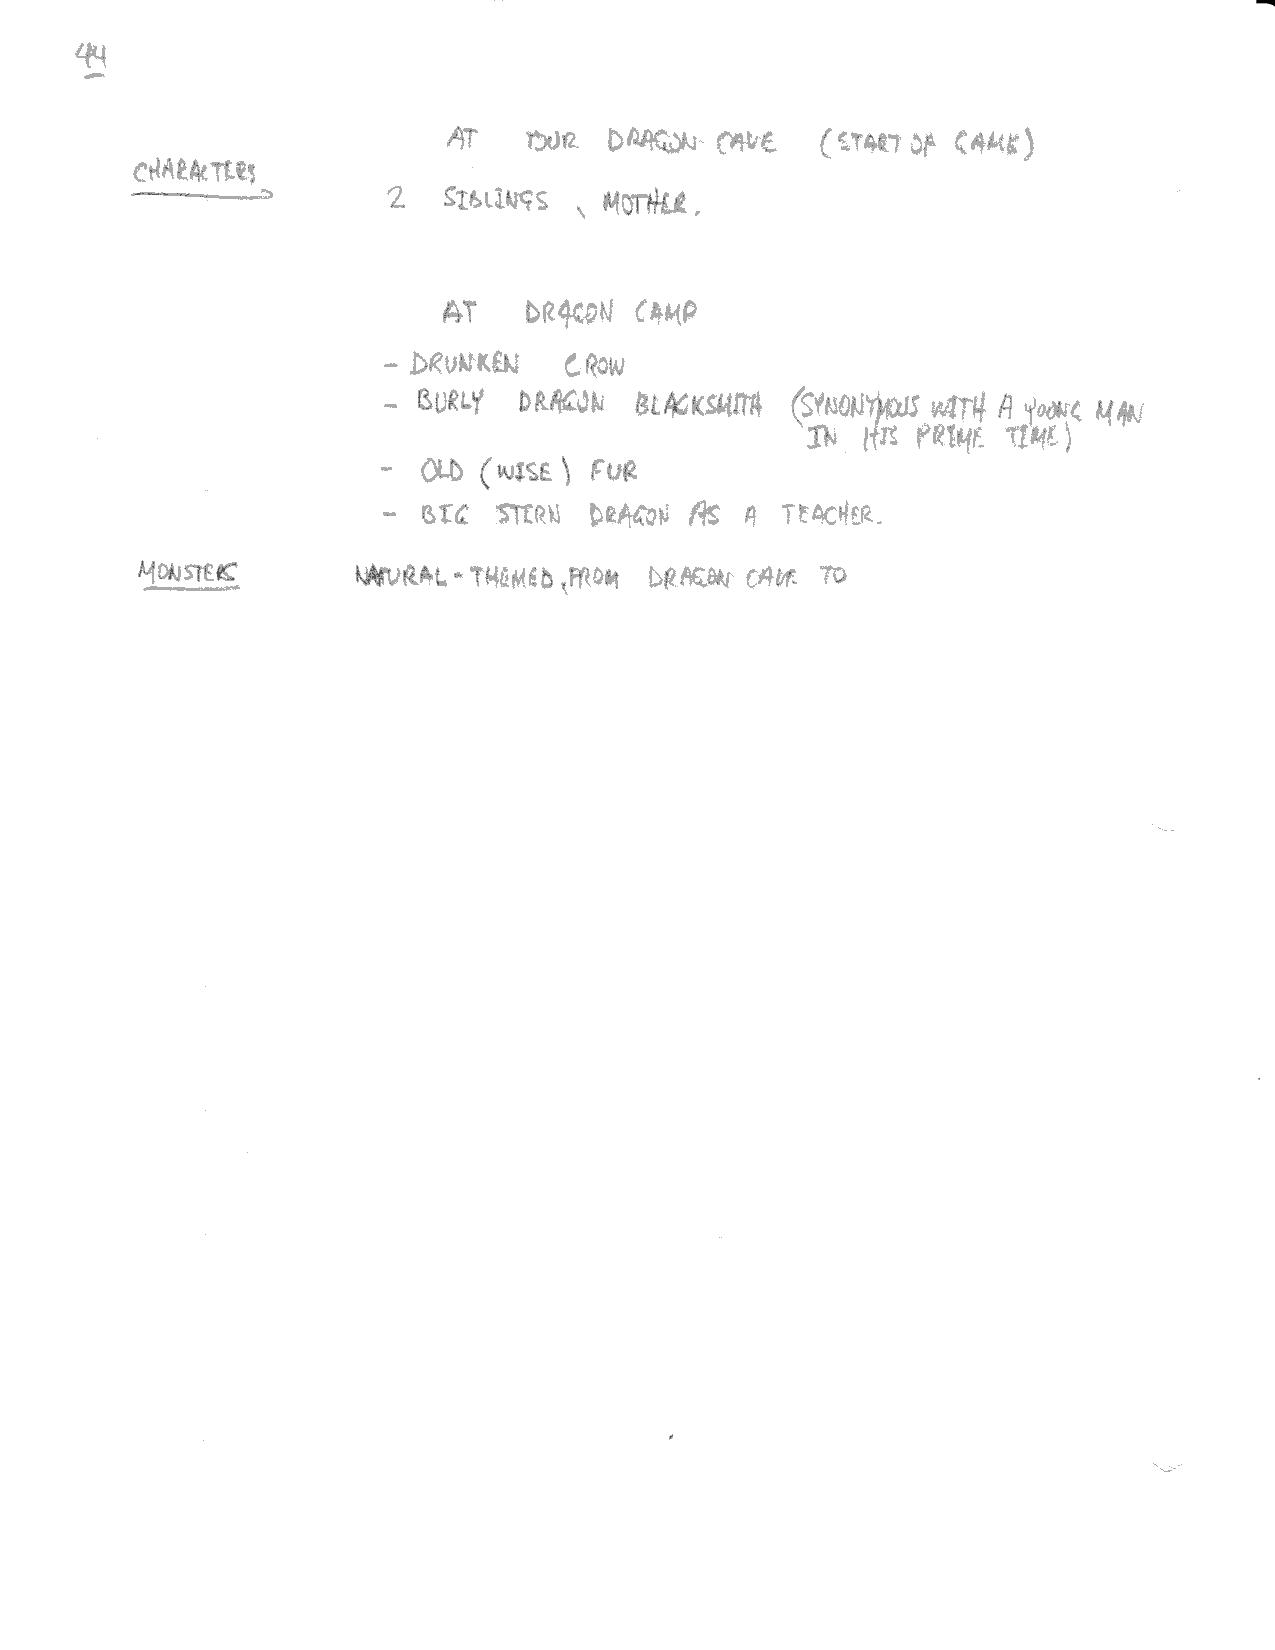 44
AT YOUR DRAGON CAVE (START OF GAME)
CHARACTERS
2 SIBLINGS, MOTHER.
AT DRAGON CAMP
- DRUNKEN CROW
- BURLY DRAGON BLACKSMITH (SYNONYMOUS WITH A YOUNG MAN
IN HIS PRIME TIME)
- OLD (WISE) FUR
- BIG STERN DRAGON AS A TEACHER.
MONSTERS NATURAL-THEMED, FROM DRAGON CAVE TO